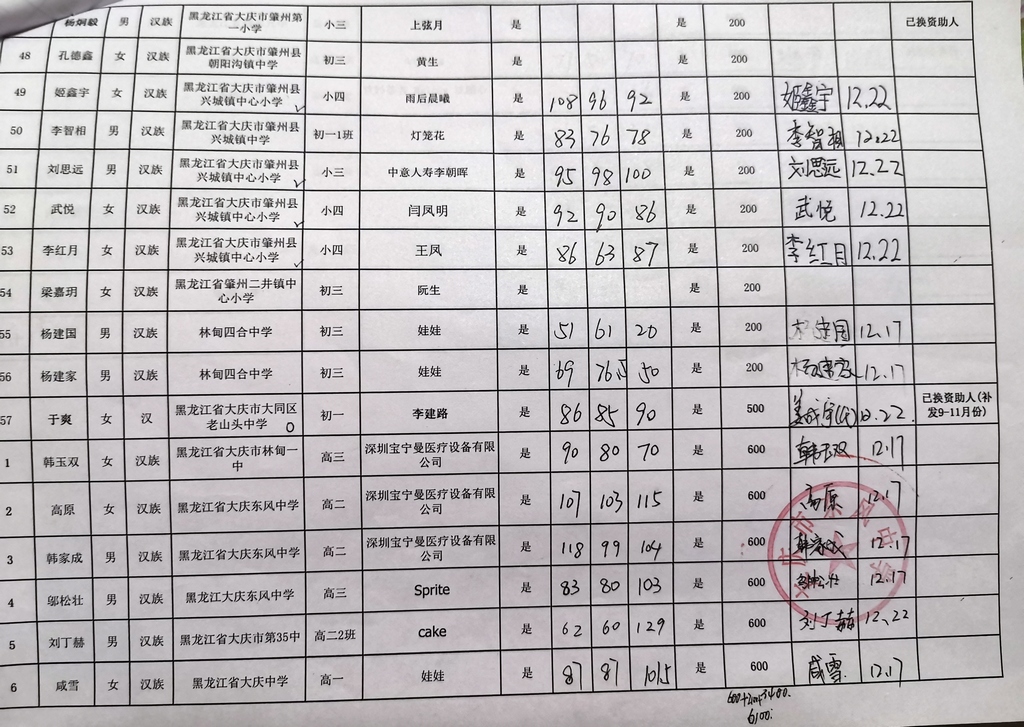 杨炳毅 男 汉族 黑龙江省大庆市肇州第一小学 小三 上弦月 是 是 200 已换资助人
48 孔德鑫 女 汉族 黑龙江省大庆市肇州县朝阳沟镇中学 初三 黄生 是 是 200
49 姬鑫宇 女 汉族 黑龙江省大庆市肇州县兴城镇中心小学 小四 雨后晨曦 是 108 96 92 是 200 姬鑫宇 12.22
50 李智相 男 汉族 黑龙江省大庆市肇州县兴城镇中学 初一1班 灯笼花 是 83 76 78 是 200 李智相 12.22
51 刘思远 男 汉族 黑龙江省大庆市肇州县兴城镇中心小学 小三 中意人寿李朝晖 是 95 98 100 是 200 刘思远 12.22
52 武悦 女 汉族 黑龙江省大庆市肇州县兴城镇中心小学 小四 闫凤明 是 92 90 86 是 200 武悦 12.22
53 李红月 女 汉族 黑龙江省大庆市肇州县兴城镇中心小学 小四 王凤 是 86 63 87 是 200 李红月 12.22
54 梁嘉玥 女 汉族 黑龙江省肇州二井镇中心小学 初三 阮生 是 是 200
55 杨建国 男 汉族 林甸四合中学 初三 娃娃 是 51 61 20 是 200 12.17
56 杨建家 男 汉族 林甸四合中学 初三 娃娃 是 69 76.5 50 是 200 12.17
57 于爽 女 汉 黑龙江省大庆市大同区老山头中学 初一 李建路 是 86 85 90 是 500 12.22 已换资助人(补发9-11月份)
1 韩玉双 女 汉族 黑龙江省大庆市林甸一中 高三 深圳宝宁曼医疗设备有限公司 是 90 80 70 是 600 韩玉双 12.17
2 高原 女 汉族 黑龙江省大庆东风中学 高二 深圳宝宁曼医疗设备有限公司 是 107 103 115 是 600 高原 12.17
3 韩家成 男 汉族 黑龙江省大庆东风中学 高二 深圳宝宁曼医疗设备有限公司 是 118 99 104 是 600 韩家成 12.17
4 邬松壮 男 汉族 黑龙江大庆东风中学 高三 Sprite 是 83 80 103 是 600 邬松壮 12.17
5 刘丁赫 男 汉族 黑龙江省大庆市第35中 高二2班 cake 是 62 60 129 是 600 刘丁赫 12.22
6 咸雪 女 汉族 黑龙江省大庆中学 高一 娃娃 是 87 87 101.5 是 600 咸雪 12.17
6100